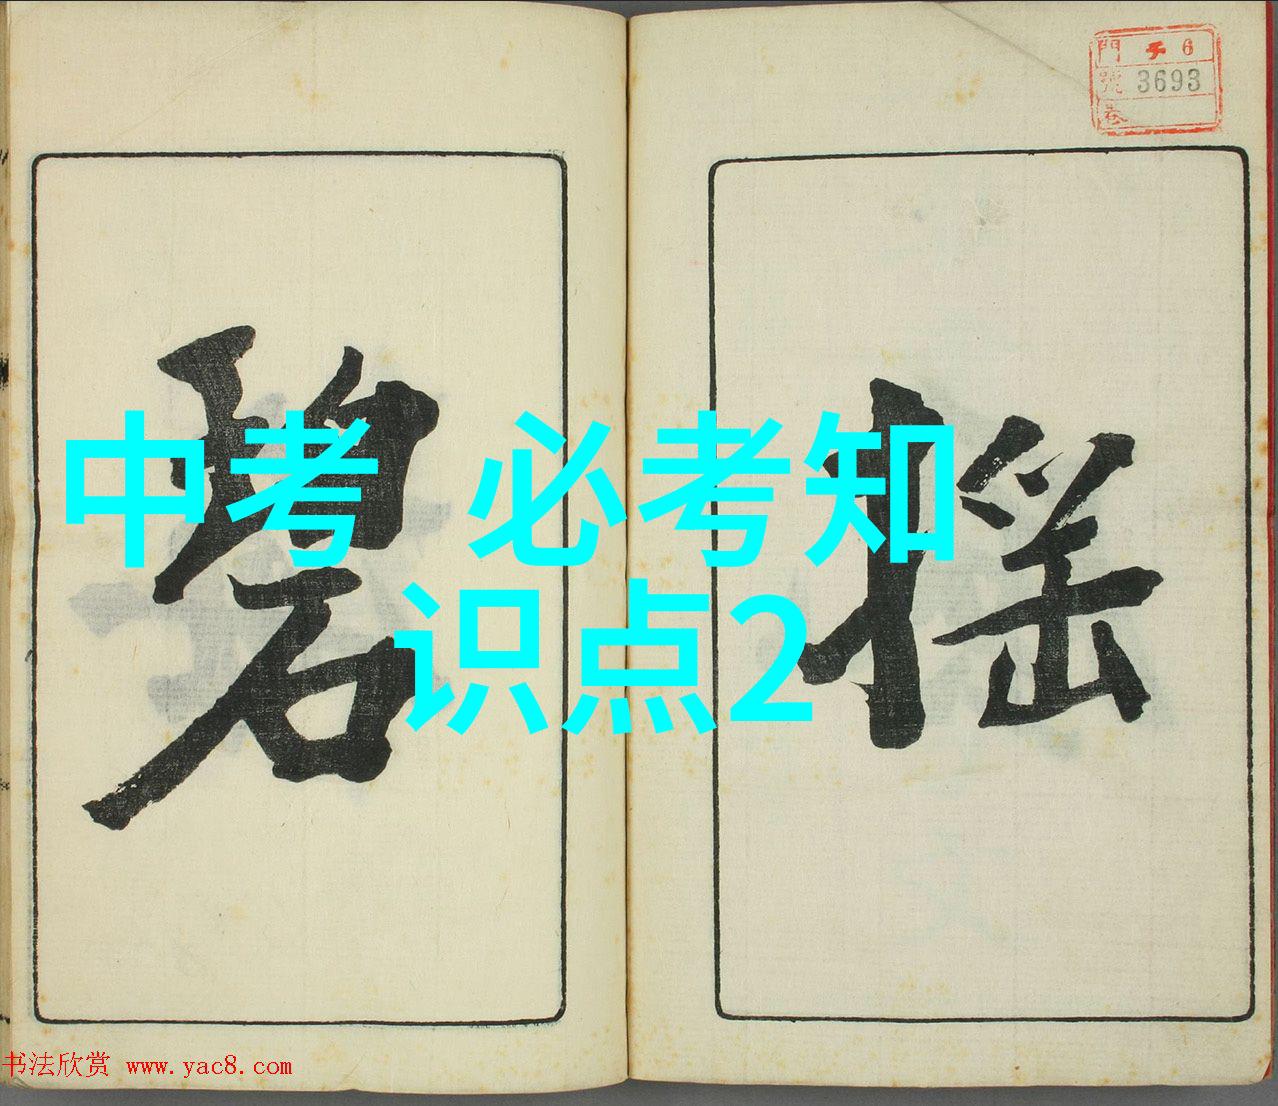 門 チ 6
號 3693
巻
搖
碧
中考 必考知
识点2
书法欣赏 www.yac8.com